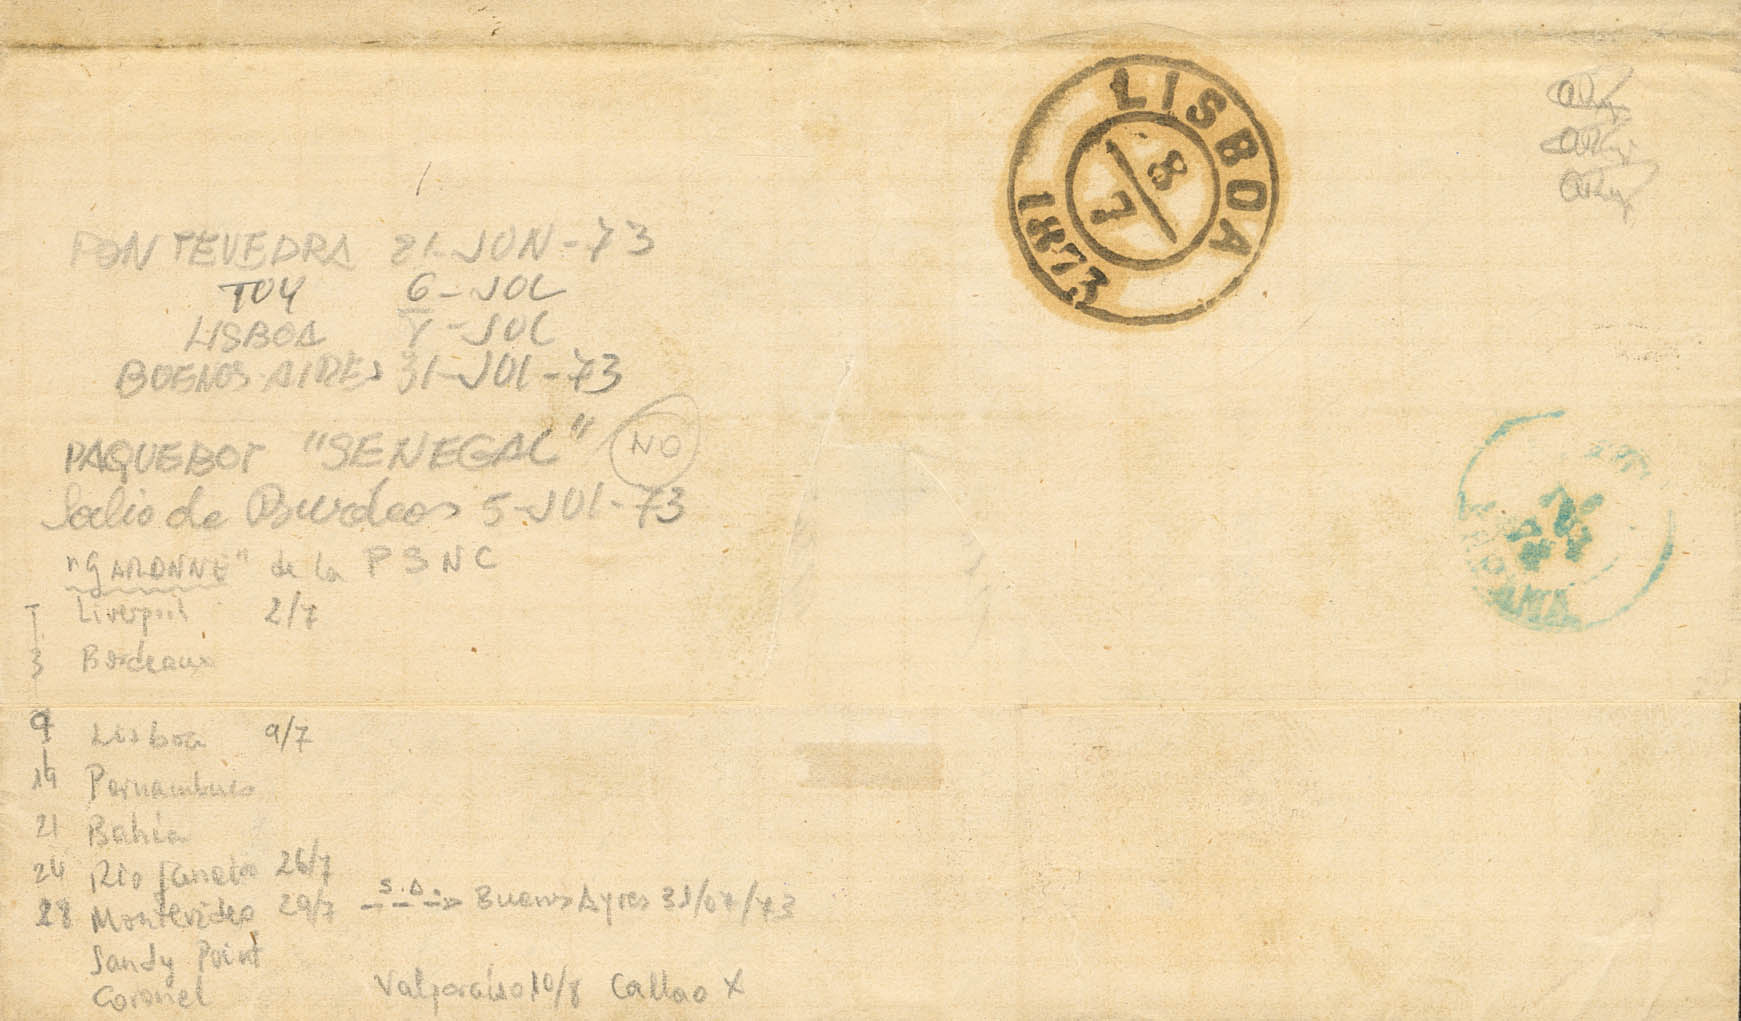 LISBOA
8
7
1873
PONTEVEDRA 21-JUN-73
TUY 6-JUL
LISBOA 8-JUL
BUENOS AIRES 31-JUL-73
PAQUEBOT "SENEGAL" NO
Salio de Burdeos 5-JUL-73
"GARONNE" de la PSNC
Liverpool 2/7
3 Bordeaux
9 Lisboa 9/7
19 Pernambuco
21 Bahía
24 Rio Janeiro 26/7
28 Montevideo 29/7 S.A. Buenos Ayres 31/07/73
Sandy Point
Coronel Valparaíso 10/8 Callao X